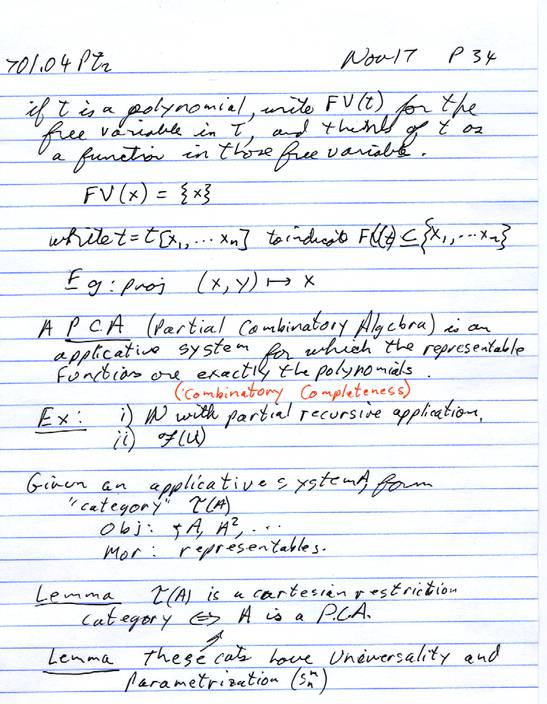 701.04 Pt2 Nov 17 P 34
if t is a polynomial, write FV(t) for the
free variable in T, and think of t as
a function in those free variable.
FV(x) = {x}
write t = t[x₁, ... xₙ] to indicate FV(t) ⊆ {x₁, ... xₙ}
Eg: proj (x, y) ↦ x
A P.C.A (Partial Combinatory Algebra) is an
applicative system for which the representable
functions are exactly the polynomials.
(Combinatory Completeness)
Ex: i) ℕ with partial recursive application,
ii) 𝒫(ω)
Given an applicative system A, form
"category" τ(A)
Obj: 1, A, A², ...
Mor: representables.
Lemma τ(A) is a cartesian restriction
category ⇔ A is a P.C.A.
Lemma These cats have Universality and
Parametrization (Sₙᵐ)